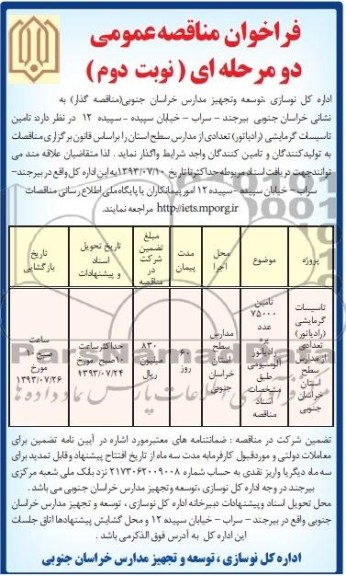 فراخوان مناقصه عمومی
دو مرحله ای ( نوبت دوم )
اداره کل نوسازی ،توسعه وتجهیز مدارس خراسان جنوبی(مناقصه گذار) به
نشانی خراسان جنوبی بیرجند – سراب – خیابان سپیده – سپیده ۱۲ در نظر دارد: تامین
تاسیسات گرمایشی (رادیاتور) تعدادی از مدارس سطح استان را براساس قانون برگزاری مناقصات
به تولیدکنندگان و تامین کنندگان واجد شرایط واگذار نماید . لذا متقاضیان علاقه مند می
توانندجهت دریافت اسناد مربوطه حداکثر تا تاریخ ۱۳۹۳/۰۷/۱۰ به این اداره کل واقع در بیرجند–
سراب – خیابان سپیده –سپیده ۱۲ امور پیمانکاران یا پایگاه ملی اطلاع رسانی مناقصات
http://iets.mporg.ir مراجعه نمایند.
پروژه
موضوع
محل اجرا
مدت پیمان
مبلغ تضمین شرکت در مناقصه
تاریخ تحویل اسناد و پیشنهادات
تاریخ بازگشایی
تاسیسات گرمایشی (رادیاتور) تعدادی از مدارس سطح استان خراسان جنوبی
تامین ۷۵۰۰۰ عدد پره رادیاتور آلومینیومی طبق مشخصات اسناد مناقصه
مدارس سطح استان خراسان جنوبی
۶۰ روز
۸۳۰ میلیون ریال
حداکثر ساعت ۱۰صبح مورخ ۹۳/۰۷/۲۴
ساعت ۱۰ صبح مورخ ۱۳۹۳/۰۷/۲۶
تضمین شرکت در مناقصه : ضمانتنامه های معتبرمورد اشاره در آیین نامه تضمین برای
معاملات دولتی و موردقبول کارفرمابه مدت سه ماه از تاریخ افتتاح پیشنهاد و قابل تمدید برای
سه ماه دیگر یا واریز نقدی به حساب شماره ۲۱۷۳۰۶۲۰۰۹۰۰۸ نزد بانک ملی شعبه مرکزی
بیرجند در وجه اداره کل نوسازی ،توسعه و تجهیز مدارس خراسان جنوبی می باشد .
محل تحویل اسناد و پیشنهادات دبیرخانه اداره کل نوسازی ، توسعه و تجهیز مدارس خراسان
جنوبی واقع در بیرجند – سراب – خیابان سپیده ۱۲ و محل گشایش پیشنهادها اتاق جلسات
این اداره کل به آدرس فوق الذکر می باشد .
اداره کل نوسازی ، توسعه و تجهیز مدارس خراسان جنوبی